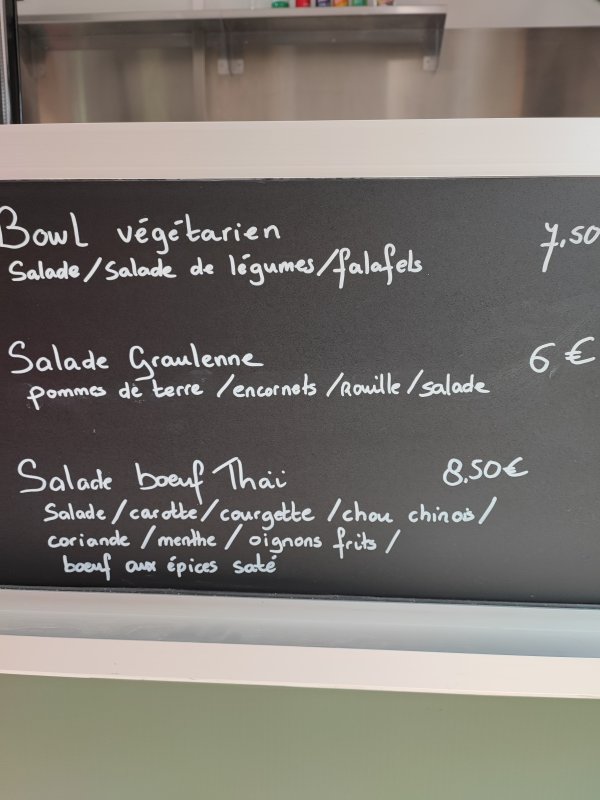 Bowl végétarien 7,50
Salade/Salade de légumes/falafels
Salade Graulenne 6 €
pommes de terre /encornets/Rouille/salade
Salade boeuf Thaï 8,50€
Salade/carotte/courgette/chou chinois/
coriande/menthe/oignons frits/
boeuf aux épices saté